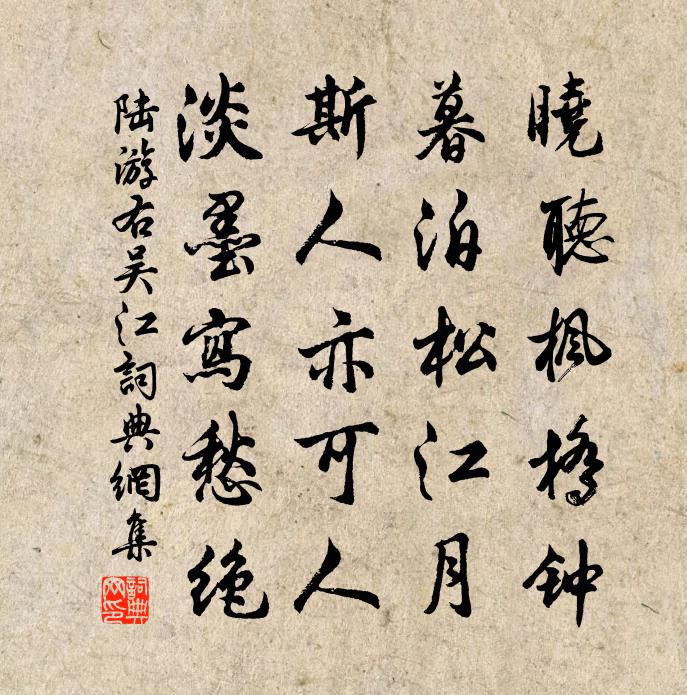 曉聽楓橋钟
暮泊松江月
斯人亦可人
淡墨寫愁绝
陆游右吴江詞典網集
詞典网印